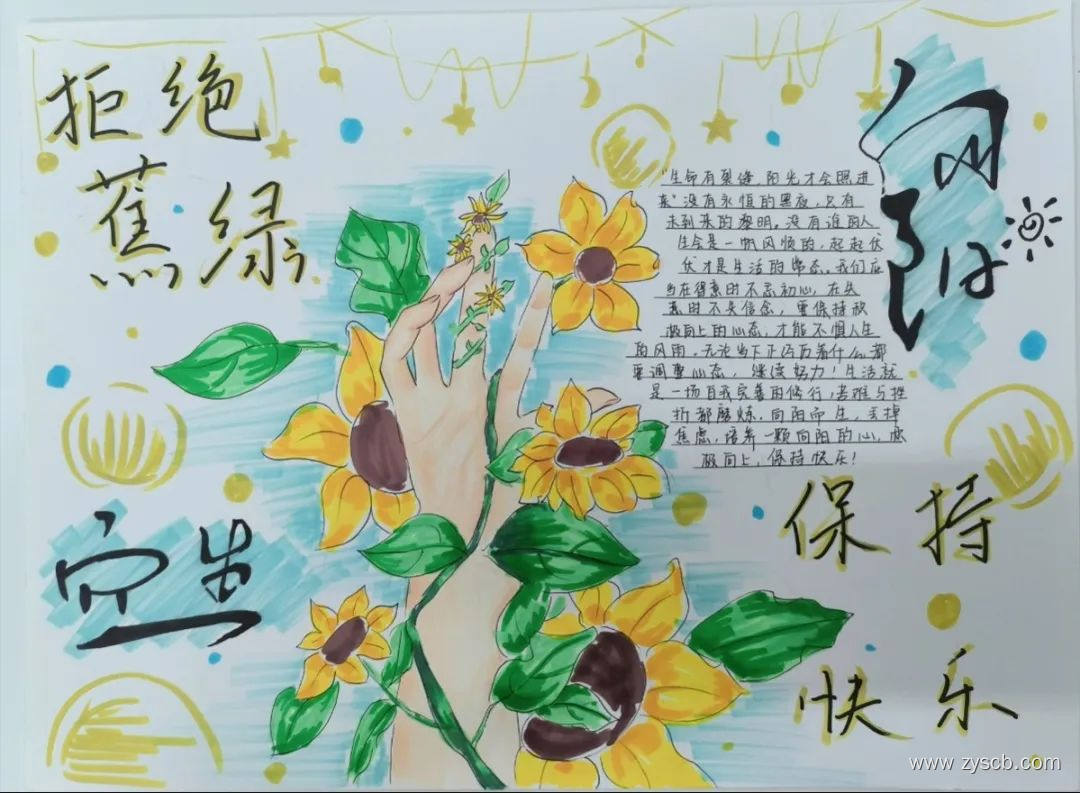 拒绝
蕉绿
向
阳
"生命有裂缝,阳光才会照进
来"没有永恒的黑夜,只有
未到来的黎明。没有谁的人
生会是一帆风顺的,起起伏
伏才是生活的常态。我们应
当在得意时不忘初心,在失
意时不失信念,要保持积
极向上的心态,才能不惧人生
的风雨。无论当下正经历着什么,都
要调整心态,继续努力!生活就
是一场自我完善的修行,苦难与挫
折都磨炼,向阳而生,丢掉
焦虑,培养一颗向阳的心,积
极向上,保持快乐!
而生
保持
快乐
www.zyscb.com